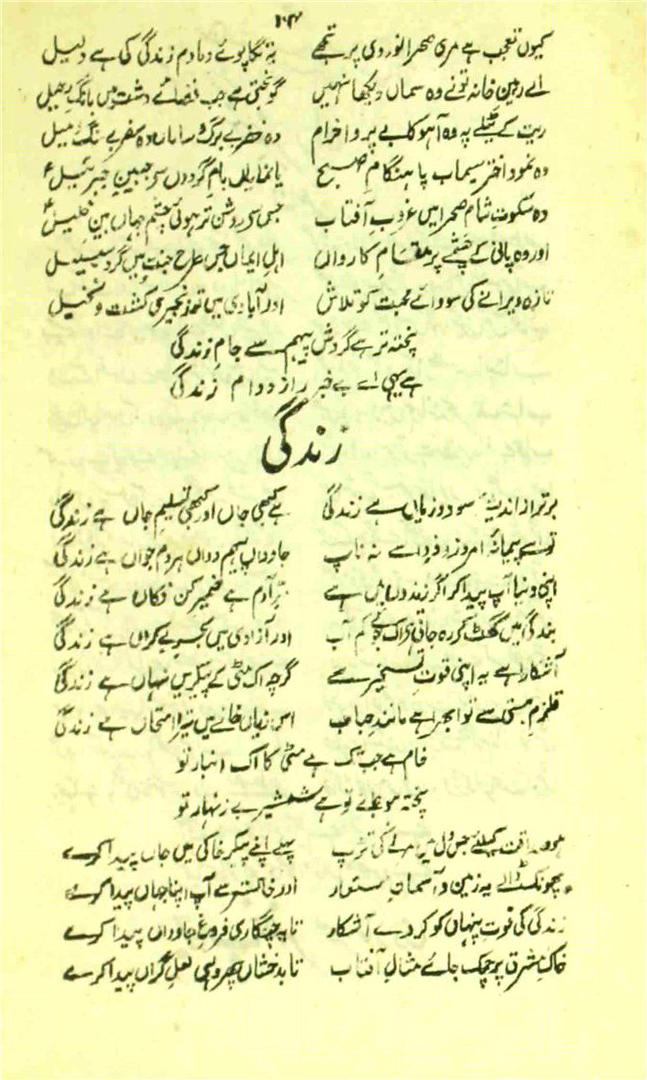 ۱۰۴
کیوں تعجب ہے مری صحرا نوردی پر تجھے یہ تگاپوئے دمادم زندگی کی ہے دلیل
اے رہینِ خانہ تونے وہ سماں دیکھا نہیں گونجتی ہے جب فضائے دشت میں بانگِ رحیل
ریت کے ٹیلے پہ وہ آہو کا بے پروا خرام وہ خضر بے برگ و ساماں وہ سفر بے سنگ و میل
وہ نمودِ اخترِ سیماب پا ہنگامِ صبح یا نمایاں بامِ گردوں سے جبینِ جبرئیلؑ
وہ سکوتِ شامِ صحرا میں غروبِ آفتاب جس سے روشن تر ہوئی چشمِ جہاں بینِ خلیلؑ
اور وہ پانی کے چشمے پر مقامِ کارواں اہلِ ایماں جس طرح جنت میں گردِ سلسبیل
تازہ ویرانے کی سودائے محبت کو تلاش اور آبادی میں تو زنجیریِ کشت و نخیل
پختہ تر ہے گردشِ پیہم سے جامِ زندگی
ہے یہی اے بے خبر رازِ دوامِ زندگی
زندگی
برتر از اندیشۂ سود و زیاں ہے زندگی ہے کبھی جاں اور کبھی تسلیمِ جاں ہے زندگی
تو اسے پیمانۂ امروز و فردا سے نہ ناپ جاوداں پیہم دواں ہر دم جواں ہے زندگی
اپنی دنیا آپ پیدا کر اگر زندوں میں ہے سرِّ آدم ہے ضمیرِ کن فکاں ہے زندگی
بندگی میں گھٹ کے رہ جاتی ہے اک جوئے کم آب اور آزادی میں بحرِ بے کراں ہے زندگی
آشکارا ہے یہ اپنی قوتِ تسخیر سے گرچہ اک مٹی کے پیکر میں نہاں ہے زندگی
قلزمِ ہستی سے تو ابھرا ہے مانندِ حباب اس زیاں خانے میں تیرا امتحاں ہے زندگی
خام ہے جب تک تو ہے مٹی کا اک انبار تو
پختہ ہو جائے تو ہے شمشیرِ بے زنہار تو
ہو صداقت کیلئے جس دل میں مرنے کی تڑپ پہلے اپنے پیکرِ خاکی میں جاں پیدا کرے
پھونک ڈالے یہ زمین و آسمانِ مستعار اور خاکستر سے آپ اپنا جہاں پیدا کرے
زندگی کی قوتِ پنہاں کو کر دے آشکار تا یہ چنگاری فروغِ جاوداں پیدا کرے
خاکِ مشرق پر چمک جائے مثالِ آفتاب تا بدخشاں پھر وہی لعلِ گراں پیدا کرے